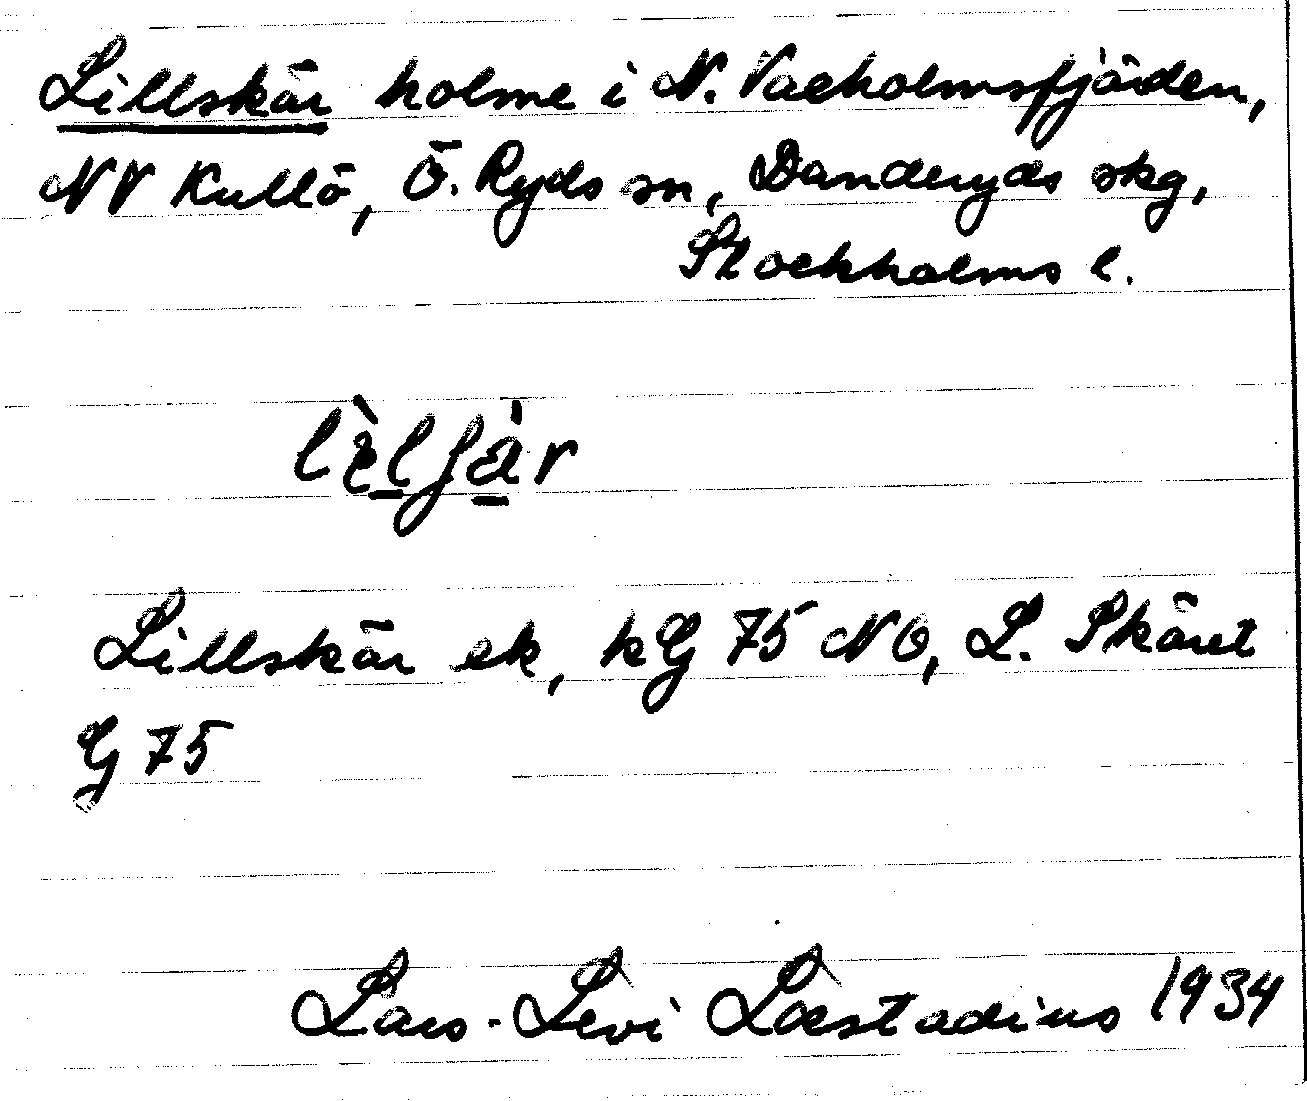 Lillskär holme i N. Vaxholmsfjärden,
NV Kullö, Ö. Ryds sn, Danderyds skg,
Stockholms l.
Lillskär ek, kG 75 NO, L. Skäret
G 75
Lars-Levi Læstadius 1934